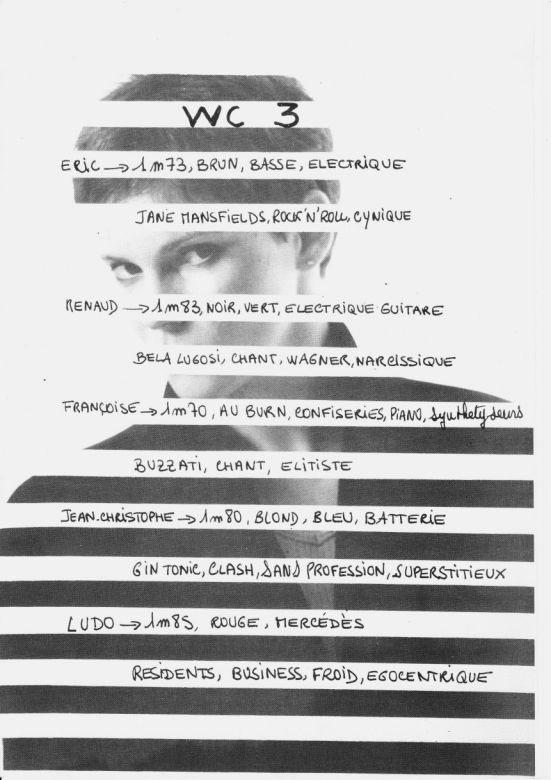 WC 3
ERIC → 1m73, BRUN, BASSE, ELECTRIQUE
JANE MANSFIELDS, ROCK'N'ROLL, CYNIQUE
RENAUD → 1m83, NOIR, VERT, ELECTRIQUE GUITARE
BELA LUGOSI, CHANT, WAGNER, NARCISSIQUE
FRANÇOISE → 1m70, AU BURN, CONFISERIES, PIANO, Synthetyseurs
BUZZATI, CHANT, ELITISTE
JEAN.CHRISTOPHE → 1m80, BLOND, BLEU, BATTERIE
GIN TONIC, CLASH, SANS PROFESSION, SUPERSTITIEUX
LUDO → 1m85, ROUGE, MERCÉDÈS
RESIDENTS, BUSINESS, FROID, EGOCENTRIQUE